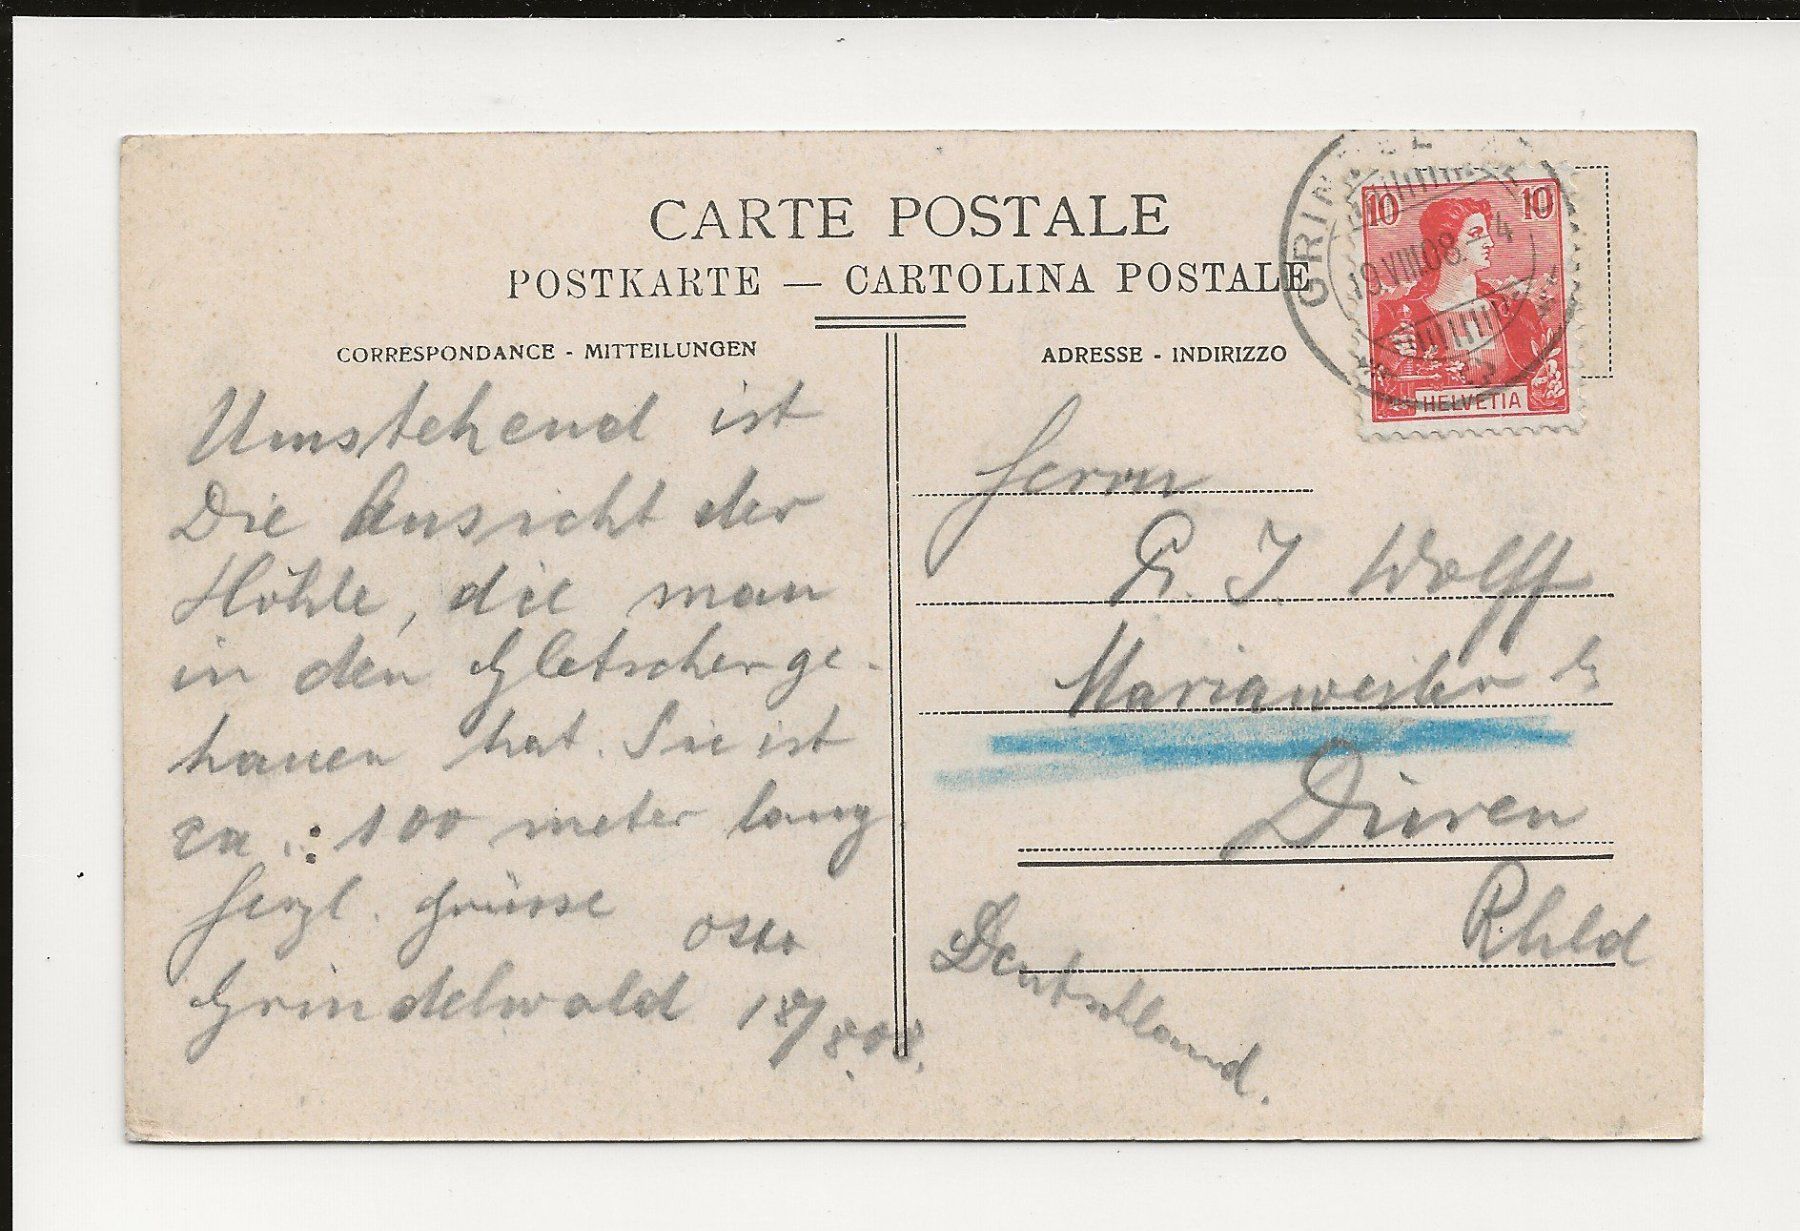 CARTE POSTALE
POSTKARTE — CARTOLINA POSTALE
CORRESPONDANCE - MITTEILUNGEN
ADRESSE - INDIRIZZO
10 10
HELVETIA
19.VIII.08. 4
Umstehend ist
Die Ansicht der
Höhle, die man
in den Gletscher ge-
hauen hat. Sie ist
ca.: 100 meter lang
Herzl. Grüsse
Grindelwald 18/8.08.
Herrn
J. Wolff
Mariaweiler b
Düren
Rhld
Deutschland.